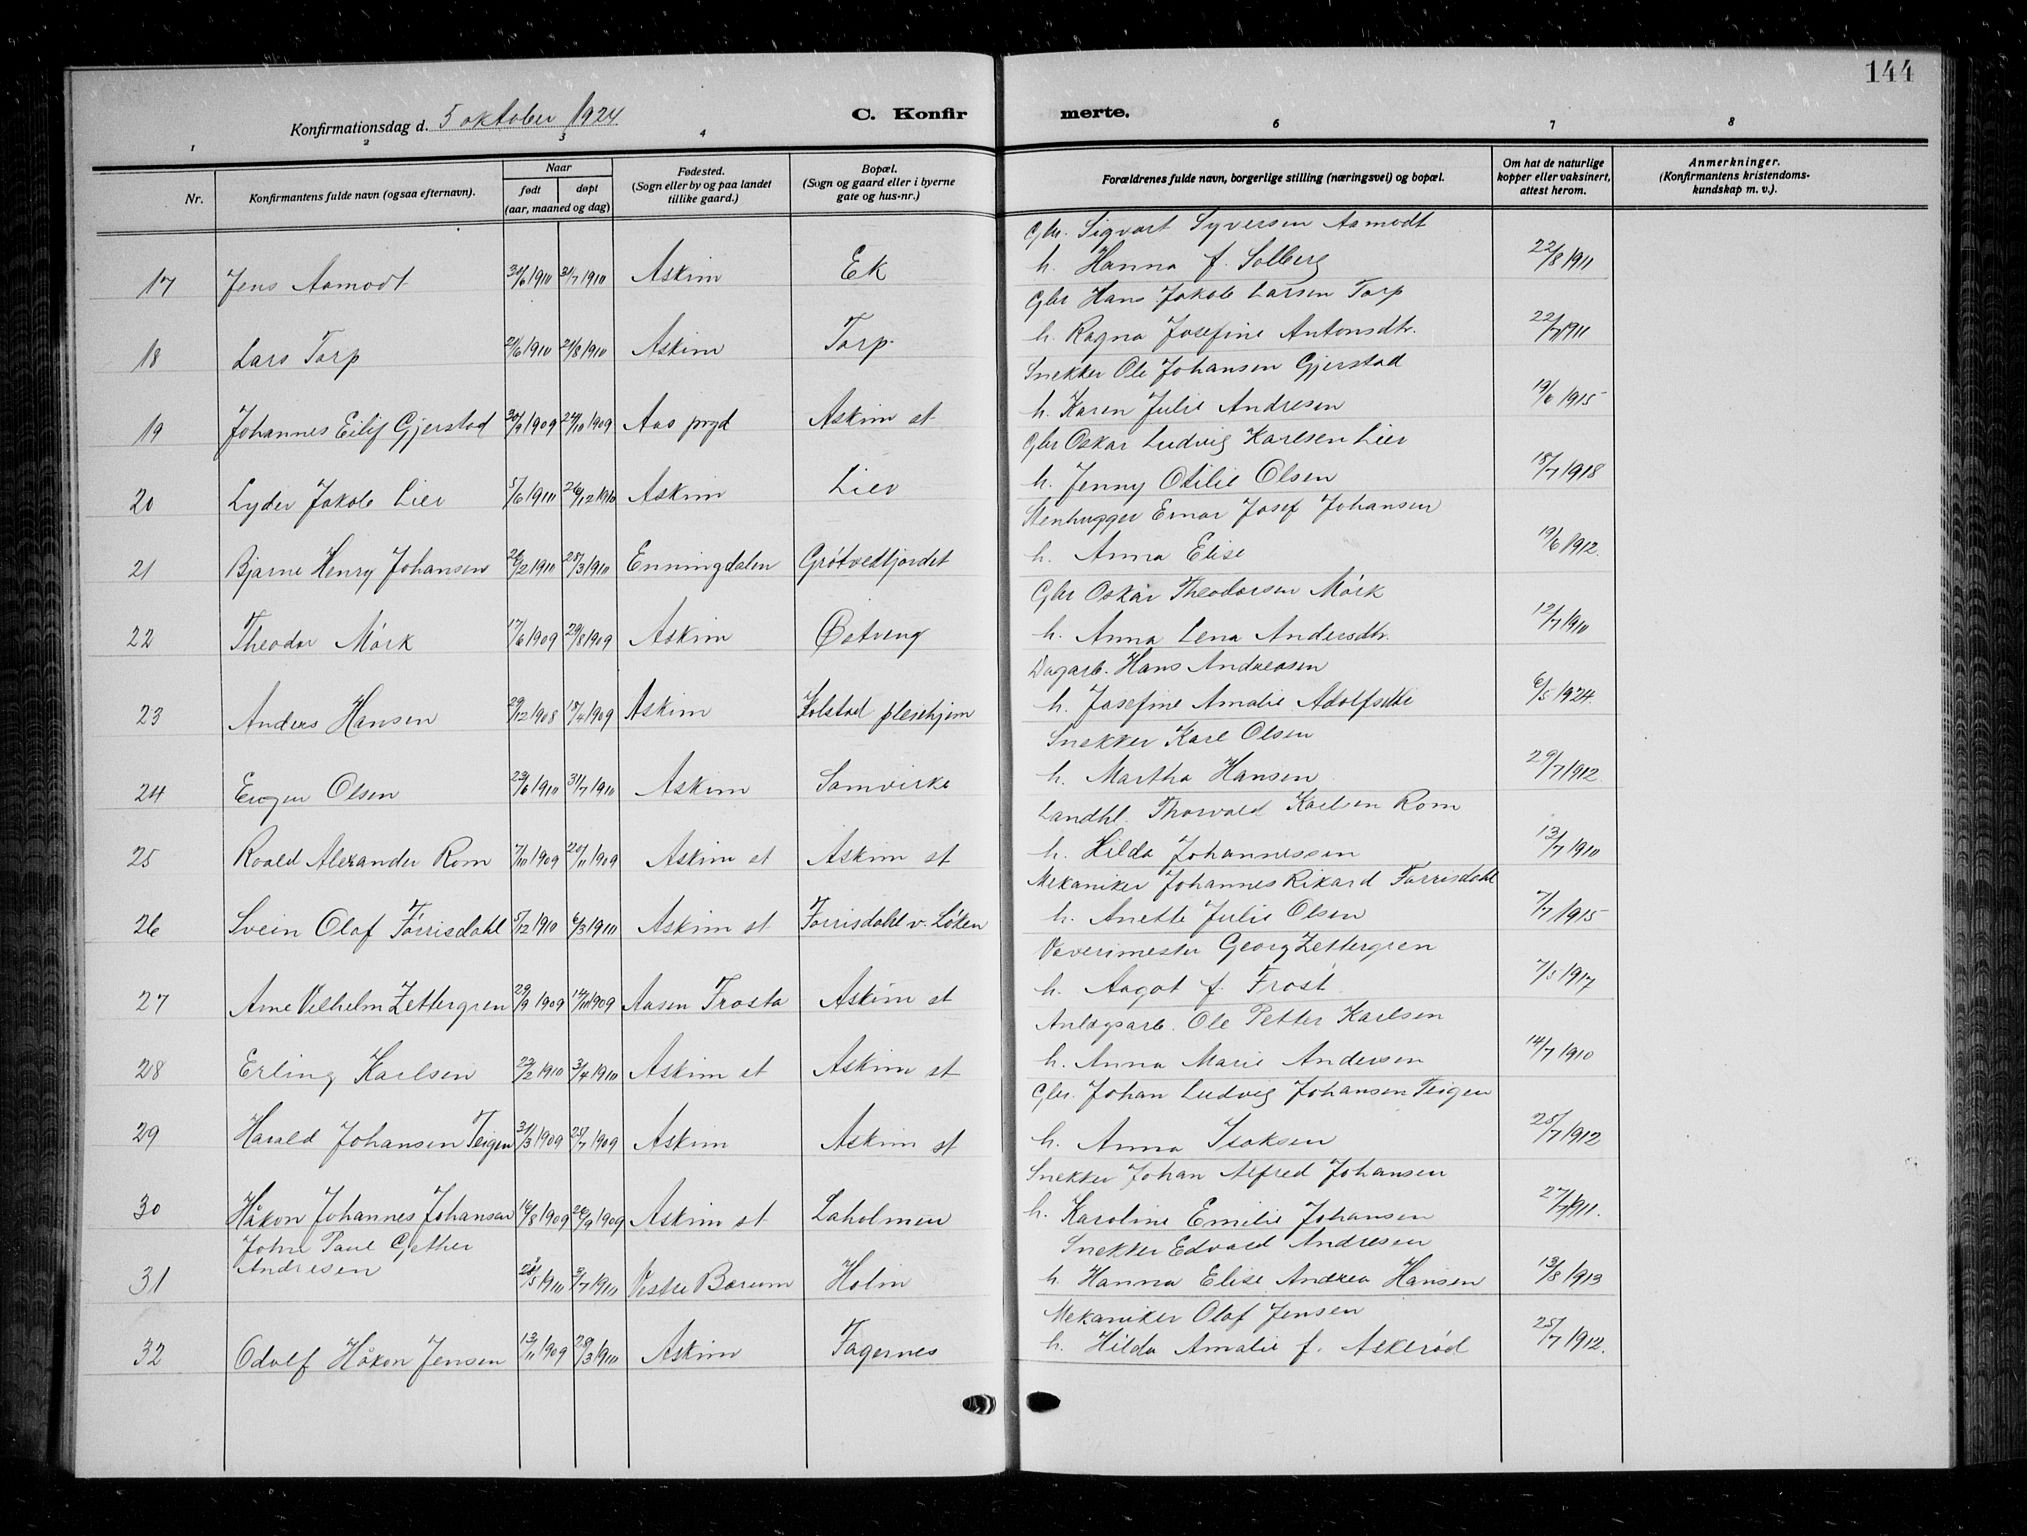 144
Konfirmationsdag d. 5 oktober 1924
C. Konfirmerte.
1 2 3 4 6 7 8
Nr.
Konfirmantens fulde navn (ogsaa efternavn).
Naar
født døpt
(aar, maaned og dag)
Fødested.
(Sogn eller by og paa landet
tillike gaard.)
Bopæl.
(Sogn og gaard eller i byerne
gate og hus-nr.)
Forældrenes fulde navn, borgerlige stilling (næringsvei) og bopæl.
Om hat de naturlige
kopper eller vaksinert,
attest herom.
Anmerkninger.
(Konfirmantens kristendoms-
kundskap m. v.).
Gbr. Sigvart Syversen Aamodt
17 Jens Aamodt 30/6 1910 31/7 1910 Askim Ek h. Hanna f. Solberg 22/8 1911
Gbr Hans Jakob Larsen Torp
18 Lars Torp 21/6 1910 21/8 1910 Askim Torp h. Ragna Josefine Antonsdtr. 22/7 1911
Snekker Ole Johansen Gjerstad
19 Johannes Eilif Gjerstad 30/9 1909 24/10 1909 Aas prgd Askim st h. Karen Julie Andresen 19/6 1915
Gbr Oskar Ludvig Karlsen Lier
20 Lyder Jakob Lier 5/6 1910 26/12 1910 Askim Lier h. Jenny Otilie Olsen 18/7 1918
Stenhugger Einar Josef Johansen
21 Bjarne Henry Johansen 26/2 1910 28/3 1910 Enningdalen Grøtvedtjordet h. Anna Elise 19/6 1912.
Gbr Oskar Theodorsen Mørk
22 Theodor Mørk 17/6 1909 29/8 1909 Askim Østveng h. Anna Lena Andersdtr. 12/7 1910
Dagarb. Hans Andreasen
23 Anders Hansen 29/12 1908 18/4 1909 Askim Kolstad pleiehjem h. Josefine Amalie Adolfsdtr 6/5 1924
Snekker Karl Olsen
24 Eugen Olsen 23/6 1910 31/7 1910 Askim Samvirke h. Martha Hansen 29/7 1912
Landhl. Thorvald Karlsen Rom
25 Roald Alexander Rom 7/10 1909 20/11 1909 Askim st Askim st h. Hilda Johannessen 13/7 1910
Mekaniker Johannes Rikard Torrisdahl
26 Svein Olaf Tørrisdahl 5/12 1910 6/3 1910 Askim st Torrisdahl v. Løken h. Anette Julie Olsen 7/7 1915
Væverimester Georg Zettergren
27 Arne Vilhelm Zettergren 29/9 1909 14/11 1909 Aasen Frosta Askim st h. Aagot f. Frost 7/5 1917
Anlægsarb. Ole Petter Karlsen
28 Erling Karlsen 22/2 1910 3/4 1910 Askim st Askim st h. Anna Marie Andersen 14/7 1910
Gbr. Johan Ludvig Johansen Teigen
29 Harald Johansen Teigen 31/3 1909 25/7 1909 Askim Askim st h. Anna Isaksen 25/7 1912
Snekker Johan Alfred Johansen
30 Håkon Johannes Johansen 16/8 1909 26/9 1909 Askim st Laholmen h. Karoline Emilie Johansen 27/7 1911.
John Paul Gether Snekker Edvard Andresen
31 Andresen 28/5 1910 3/7 1910 Vestre Bærum Holm h. Hanna Elise Andrea Hansen 13/8 1913
Mekaniker Olaf Jensen
32 Odolf Håkon Jensen 13/11 1909 28/3 1910 Askim Fagernes h. Hilda Amalie f. Askerød 25/7 1912.